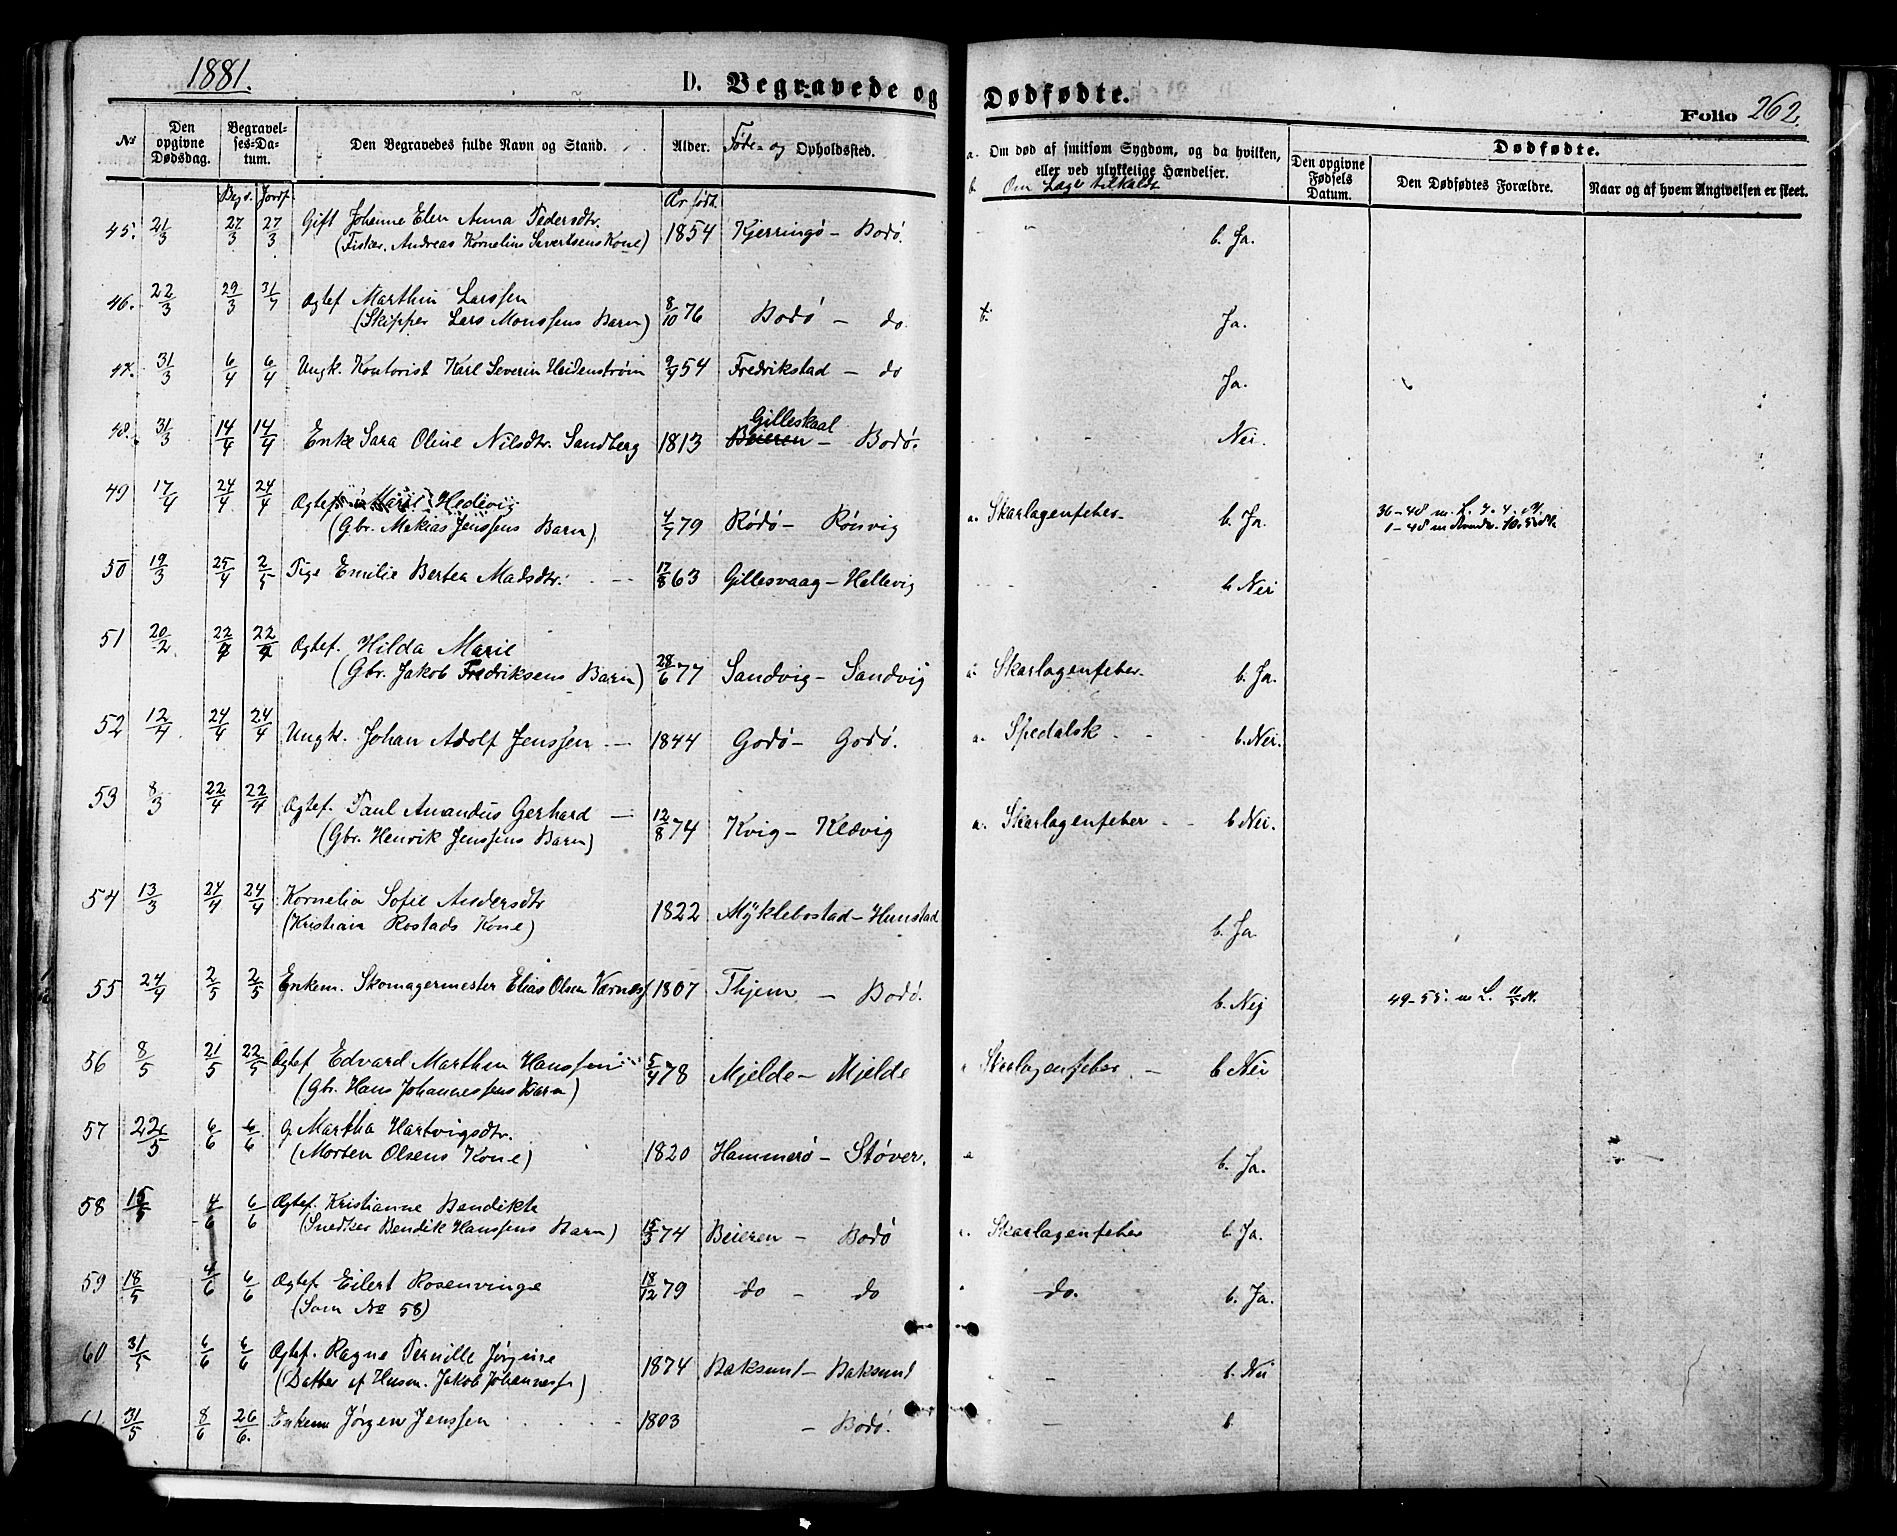 1881.
D. Begravede og Dødfødte.
Folio 262.
No
Den opgivne Dødsdag.
Begravelses-Datum.
Den Begravedes fulde Navn og Stand.
Alder.
Føde- og Opholdssted.
a. Om død af smitsom Sygdom, og da hvilken, eller ved ulykkelige Hændelser.
b. Om Læge tilkaldt
Dødfødte.
Den opgivne Fødsels Datum.
Den Dødfødtes Forældre.
Naar og af hvem Angivelsen er skeet.
Begr. Jordf. Aar født
45. 21/3 27/3 27/3 Gift Johanne Elen Anna Pedersdtr. 1854 Kjerringø - Bodø. b. Ja.
(Fisker Andreas Kornelius Sivertsens Kone)
46. 22/3 29/3 31/7 Ægtef Marthin Larssen 8/10 76 Bodø - do Ja.
(Skipper Lars Monssens Barn)
47. 31/3 6/4 6/4 Ungk. Kontorist Karl Severin Heidenstrøm 9/4 54 Fredrikstad - do Ja.
48. 31/3 14/4 14/4 Enke Sara Oline Nilsdtr. Sandberg 1813 Gilleskaal Beieren - Bodø. Nei.
49 17/4 24/4 24/4 Ægtef. Marie Hedevig
(Gbr. Mekias Jenssens Barn) 4/7 79 Rødø - Rønvig a. Skarlagenfeber b. Ja.
50 19/3 25/4 2/5 Pige Emilie Bertea Madsdtr. 17/8 63 Gillesvaag - Hellevig b. Nei
51 20/2 22/4 22/4 Ægtef. Hilda Marie
(Gbr. Jakob Fredriksens Barn) 28/6 77 Sandvig - Sandvig a. Skarlagenfeber b. Ja.
52 12/4 24/4 24/4 Ungk. Johan Adolf Jenssen 1844 Godø - Godø. a. Spedalsk b. Nei.
53 8/3 22/4 22/4 Ægtef. Paul Amandus Gerhard 12/8 74 Kvig - Kløvig a. Skarlagenfeber b Nei.
(Gbr. Henrik Jenssens Barn)
54 13/3 24/4 24/4 Kornelia Sofie Andersdtr 1822 Myklebostad - Hunstad b. Ja
(Kristian Rostads Kone)
55 24/4 2/5 2/5 Enkem. Skomagermester Elias Olsen Værnes 1807 Thjem - Bodø. b. Nej 49-55. m L. 11/5 N.
56 8/5 21/5 22/5 Ægtef Edvard Marthin Hanssen 5/4 78 Mjelde - Mjelde Skarlagenfeber b Nei
(Gbr. Hans Johannessens Barn)
57 22/5 6/6 6/6 G Martha Hartvigsdtr. 1820 Hammerø - Støver. b. Ja.
(Morten Olsens Kone)
58 15/5 4/6 6/6 Ægtef. Kristianne Bendikte
(Snedker Bendik Hanssens Barn) 15/3 74 Beieren - Bodø Skarlagenfeber b. Ja.
59 18/5 4/6 6/6 Ægtef. Eilert Rosenvinge 18/12 79 do - do do. b. Ja.
(Som No 58)
60 31/5 6/6 6/6 Ægtef. Ragne Pernille Jørgine 1874 Baksund - Baksund b. Nei
(Datter af Husm. Jakob Johanness.)
61 31/5 8/6 26/6 Enkem Jørgen Jenssen 1803 - Bodø. b.